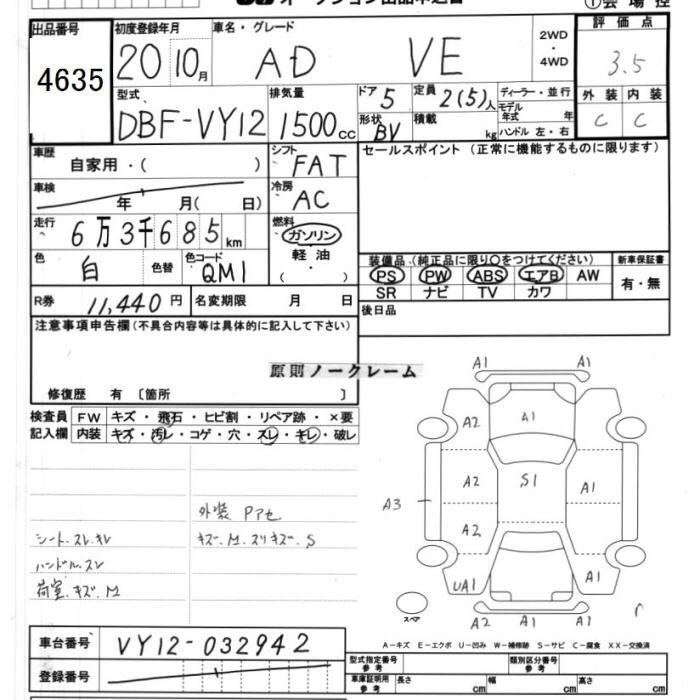 オークション出品申込書
①会場控
出品番号
4635
初度登録年月
20 10月
車名・グレード
AD VE
2WD
・
4WD
評価点
3.5
外装 内装
C C
型式
DBF-VY12
排気量
1500cc
ドア 5
形状 BV
定員 2(5)人
積載 kg
ディーラー・並行
モデル年式 年
ハンドル 左・右
車歴
自家用・( )
シフト
FAT
セールスポイント(正常に機能するものに限ります)
車検
年 月( 日)
冷房
AC
走行
6万3千685km
燃料
ガソリン
軽油
( )
色
白
色替
色コード
QM1
装備品(純正品に限り○をつけてください)
新車保証書
PS PW ABS エアB AW
有・無
SR ナビ TV カワ
R券 11,440円 名変期限 月 日
後日品
注意事項申告欄(不具合内容等は具体的に記入して下さい)
原則ノークレーム
修復歴 有〔箇所 〕
検査員 FW キズ・飛石・ヒビ割・リペア跡・×要
記入欄 内装 キズ・汚レ・コゲ・穴・スレ・キレ・破レ
外装 Pアセ
シート.スレ.キレ
キズ.M.スリキズ.S
ハンドル.スレ
荷室.キズ.M
A1 A1
A2 A1
A2 S1 A1
A3
A2
UA1 A1
スペア
A2 A1 A1
A-キズ E-エクボ U-凹み W-補修跡 S-サビ C-腐食 XX-交換済
車台番号 VY12-032942
登録番号
型式指定番号 参考
類別区分番号 参考
車庫証明用 参考 長さ cm 幅 cm 高さ cm